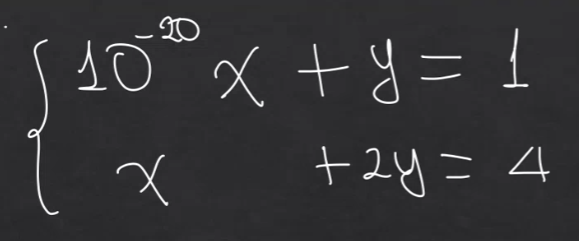 10^{-20} x + y = 1
x + 2y = 4